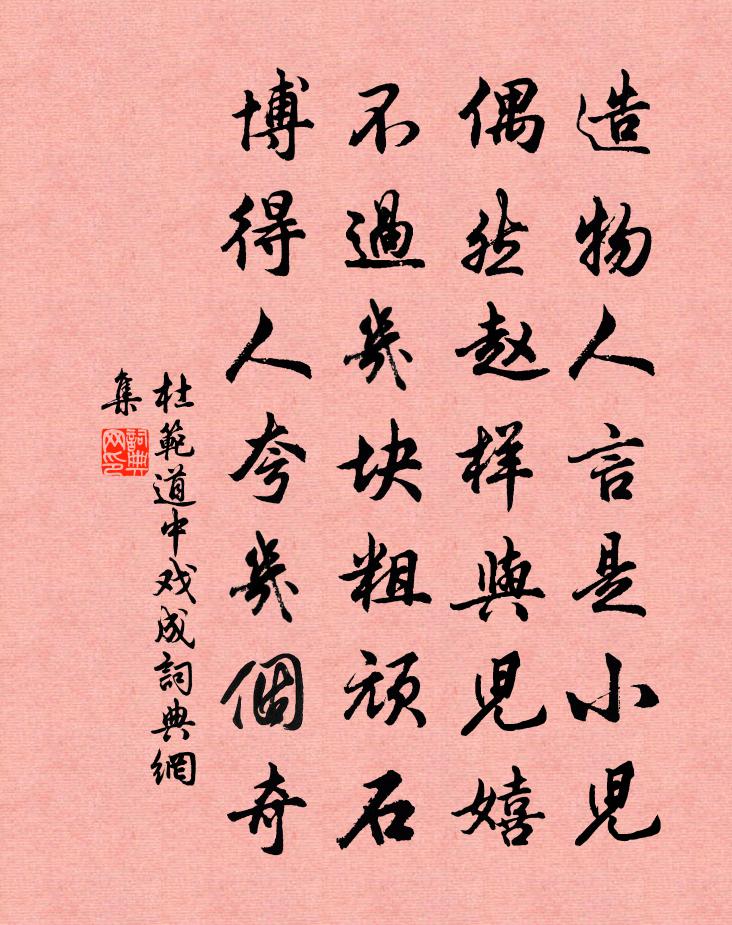 造物人言是小兒
偶然赵样與兒嬉
不過幾块粗頑石
博得人夸幾個奇
杜範道中戏成詞典網
集
詞典
网印